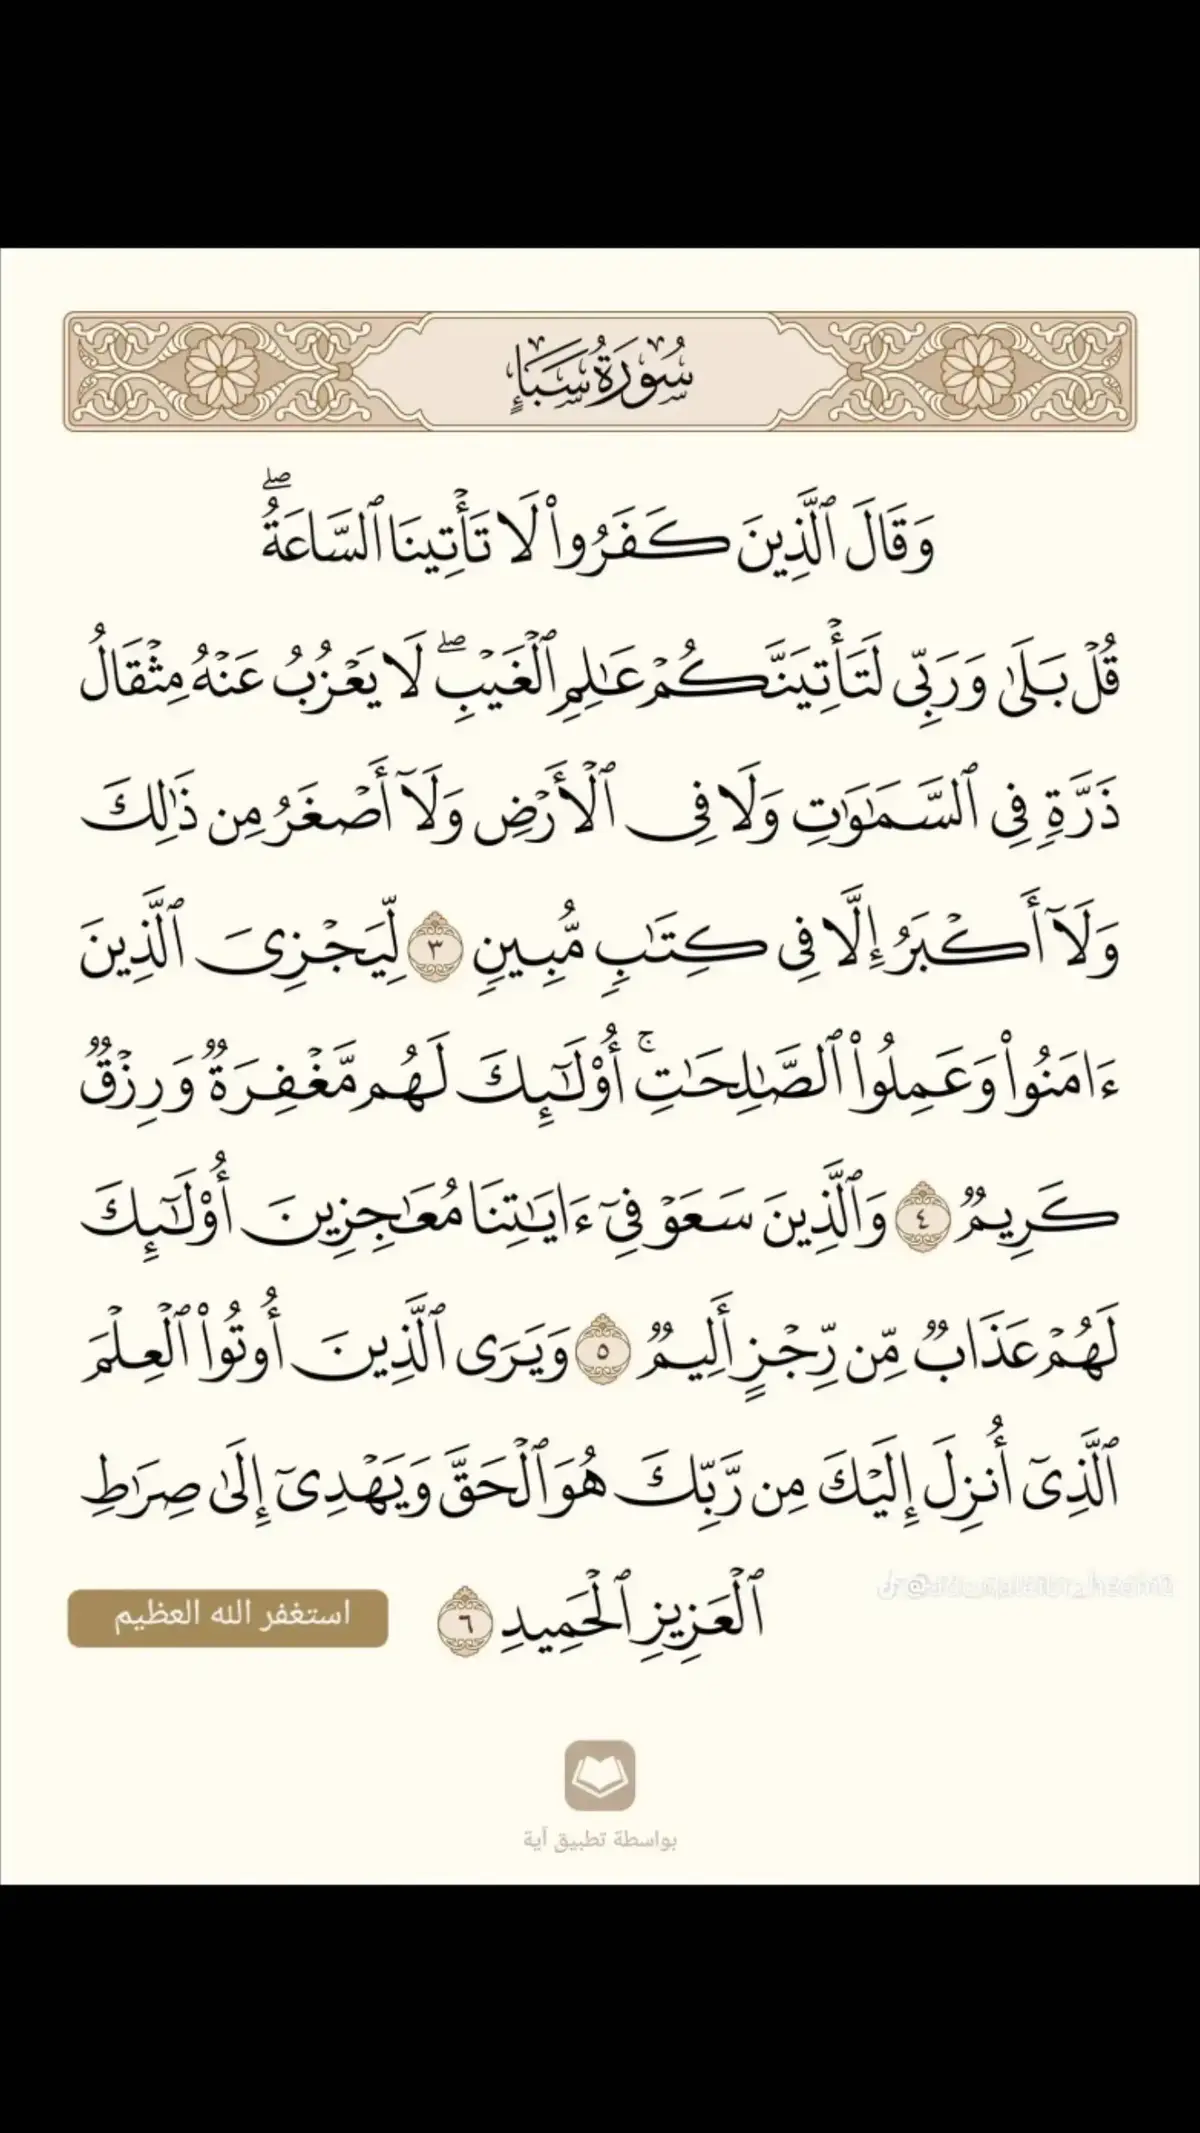 سُورَةُ سَبَإٍ
وَقَالَ ٱلَّذِينَ كَفَرُوا۟ لَا تَأْتِينَا ٱلسَّاعَةُ ۖ
قُلْ بَلَىٰ وَرَبِّى لَتَأْتِيَنَّكُمْ عَـٰلِمِ ٱلْغَيْبِ ۖ لَا يَعْزُبُ عَنْهُ مِثْقَالُ
ذَرَّةٍ فِى ٱلسَّمَـٰوَٰتِ وَلَا فِى ٱلْأَرْضِ وَلَآ أَصْغَرُ مِن ذَٰلِكَ
وَلَآ أَكْبَرُ إِلَّا فِى كِتَـٰبٍ مُّبِينٍ ٣ لِّيَجْزِىَ ٱلَّذِينَ
ءَامَنُوا۟ وَعَمِلُوا۟ ٱلصَّـٰلِحَـٰتِ ۚ أُو۟لَـٰٓئِكَ لَهُم مَّغْفِرَةٌ وَرِزْقٌ
كَرِيمٌ ٤ وَٱلَّذِينَ سَعَوْ فِىٓ ءَايَـٰتِنَا مُعَـٰجِزِينَ أُو۟لَـٰٓئِكَ
لَهُمْ عَذَابٌ مِّن رِّجْزٍ أَلِيمٌ ٥ وَيَرَى ٱلَّذِينَ أُوتُوا۟ ٱلْعِلْمَ
ٱلَّذِىٓ أُنزِلَ إِلَيْكَ مِن رَّبِّكَ هُوَ ٱلْحَقَّ وَيَهْدِىٓ إِلَىٰ صِرَٰطِ
ٱلْعَزِيزِ ٱلْحَمِيدِ ٦
استغفر الله العظيم
بواسطة تطبيق آية